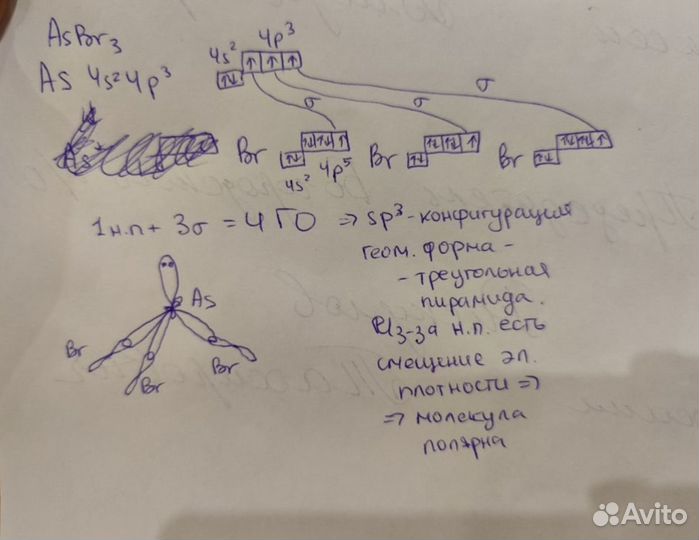 AsBr₃
4s² 4p³
As 4s²4p³
σ σ σ
As
Br Br Br
4s² 4p⁵
1н.п + 3σ = 4 ГО ⇒ sp³-конфигурация
геом. форма -
- треугольная
пирамида.
Из-за н.п. есть
смещение эл.
плотности ⇒
⇒ молекула
полярна
As
Br
Br
Br
Avito